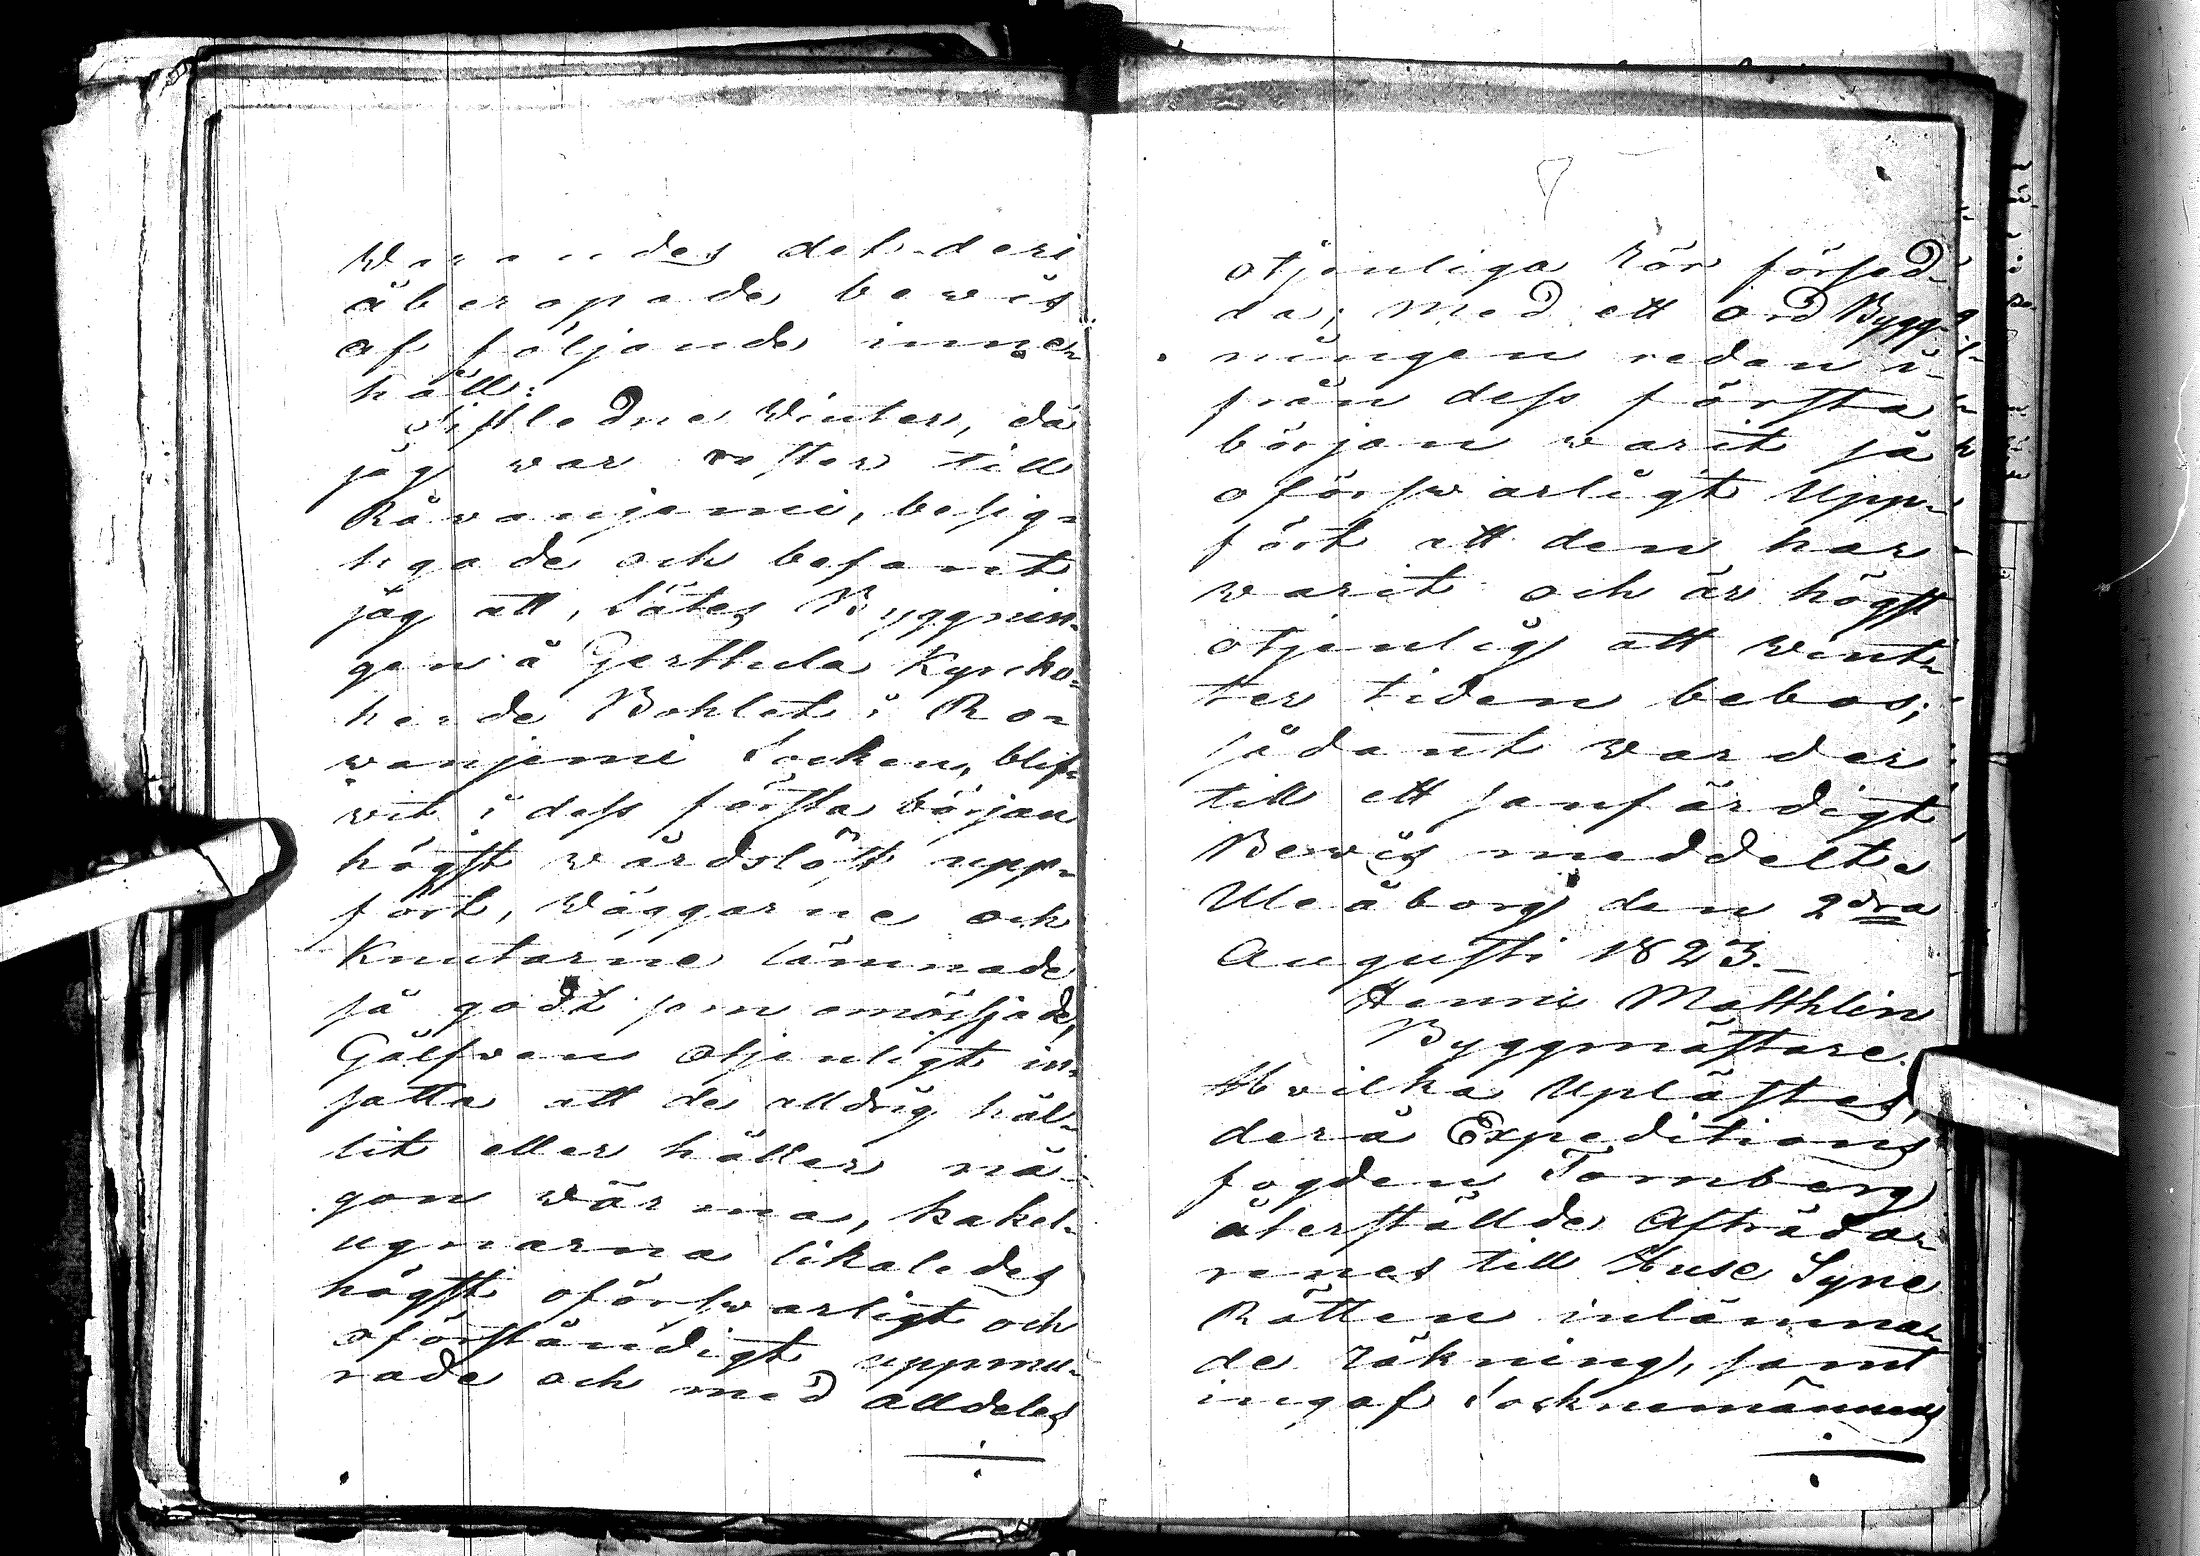 Warandes det deri
åberopade bewis
af följande inne-
håll:
Sistledne Winter, då
jag war rester till
Råvanjemi, besig-
tigade och befant
jag att, Sätes Byggnin-
gen å Gerthula Kyrcko-
herde Bohlet i Ro-
wanjemi Socken, blif-
vit i dess första början
högst wårdslöst upp-
fört, Wäggarne och
Knutarne lämnade
så godt som omåssjade,
Gålfven otjenligt in-
satta att de alldrig hål-
lit eller håller nå-
gon wärma, kakel-
ugnarna likaledes
högst oförswarligt och
oförståndigt uppmu-
rade och med alldeles
otjenliga Rör försed-
da; med ett ord Bygg-
ningen redan i-
från dess första
början warit så
oförswarligt Upp-
fört att den har
warit och är högst
otjenlig att wint-
ter tiden bebos;
sådant warder
till ett sanfärdigt
Bewis meddelt.
Uleåborg den 2dra
Augusti 1823.
Henric Matthlin
Byggmästare.
Hvilka Uplästes,
derå Expeditions
fogden Tornberg
återställde Afträda-
renes till Huse Syne
Rätten inlämna-
de räkning, samt
ingaf Socknemännens